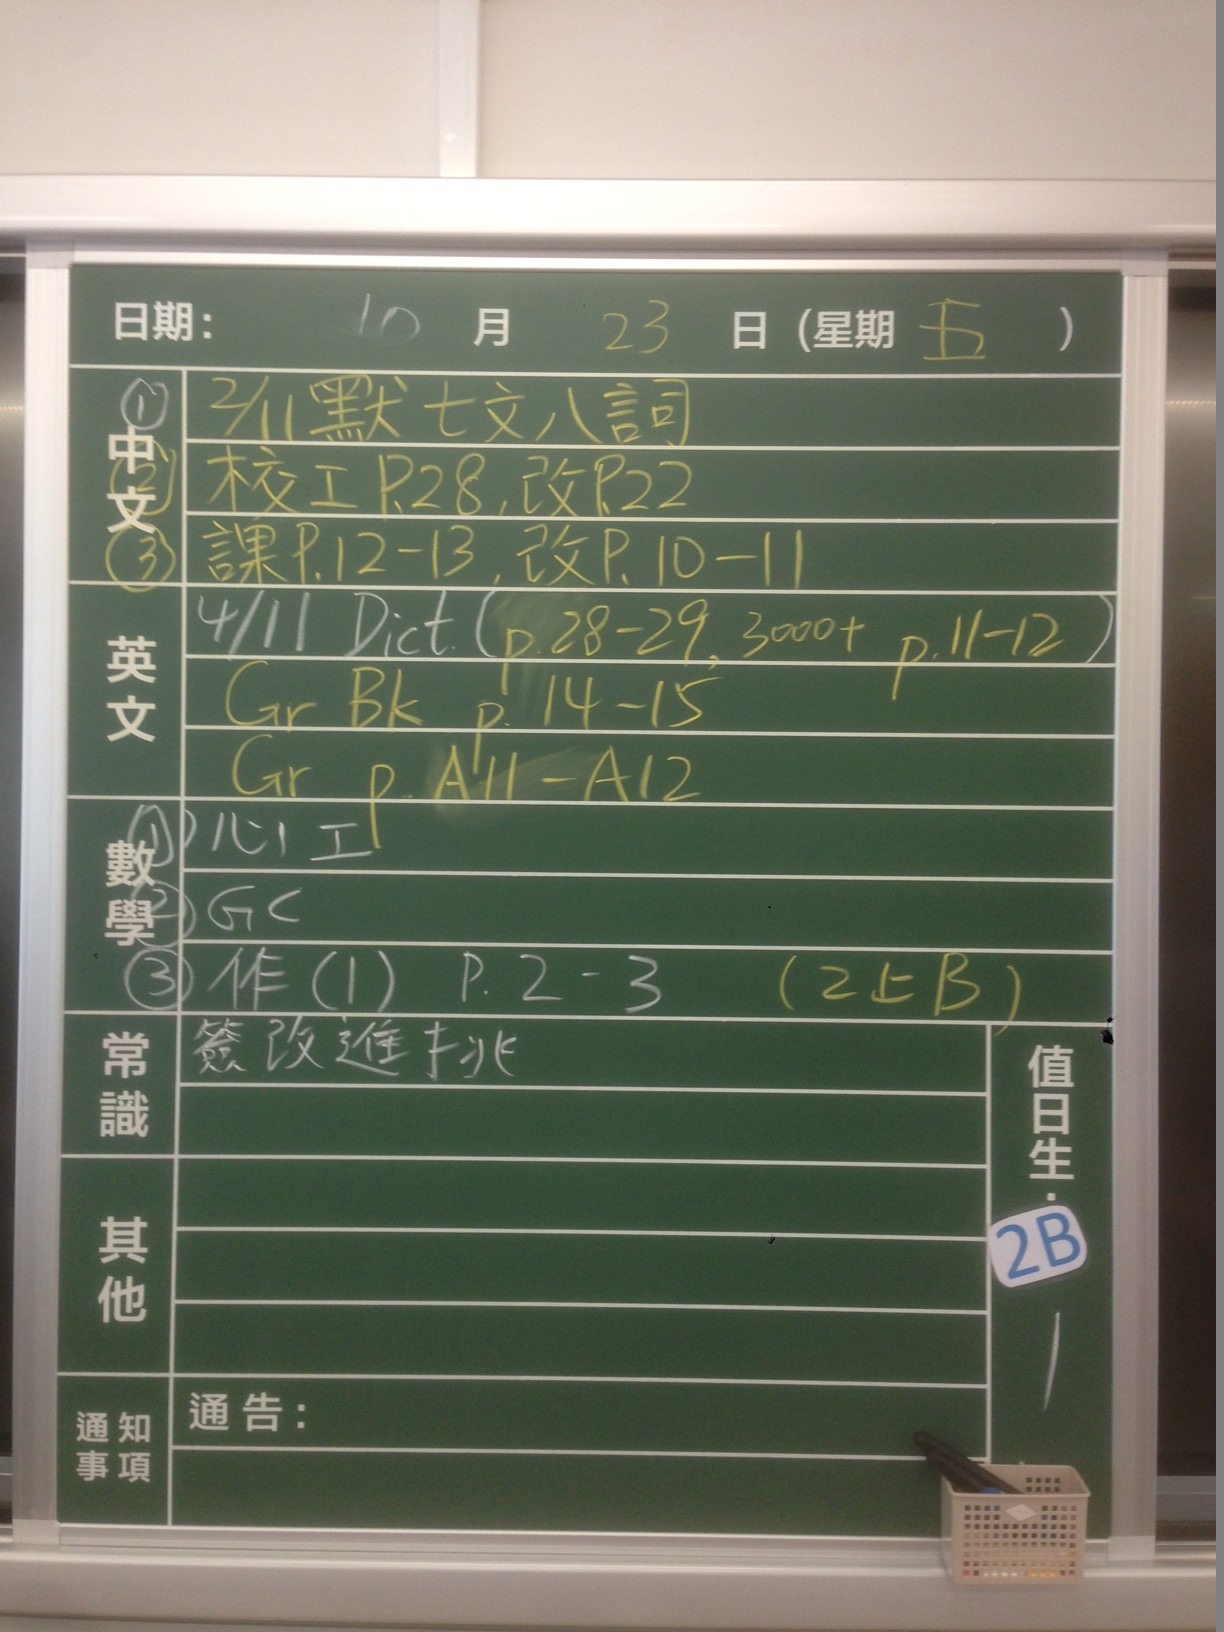 日期: 10 月 23 日 (星期 五 )
中文
① 2/11 默 七文八詞
② 校工 P.28, 改P.22
③ 課P.12-13, 改P.10-11
英文
4/11 Dict. (p.28-29, 3000+ p.11-12)
Gr Bk p. 14-15
Gr p. A11-A12
數學
① 心工
② GC
③ 作(1) P. 2-3 (2上B)
常識
簽改進挑
值日生:
2B
1
其他
通知事項
通告: